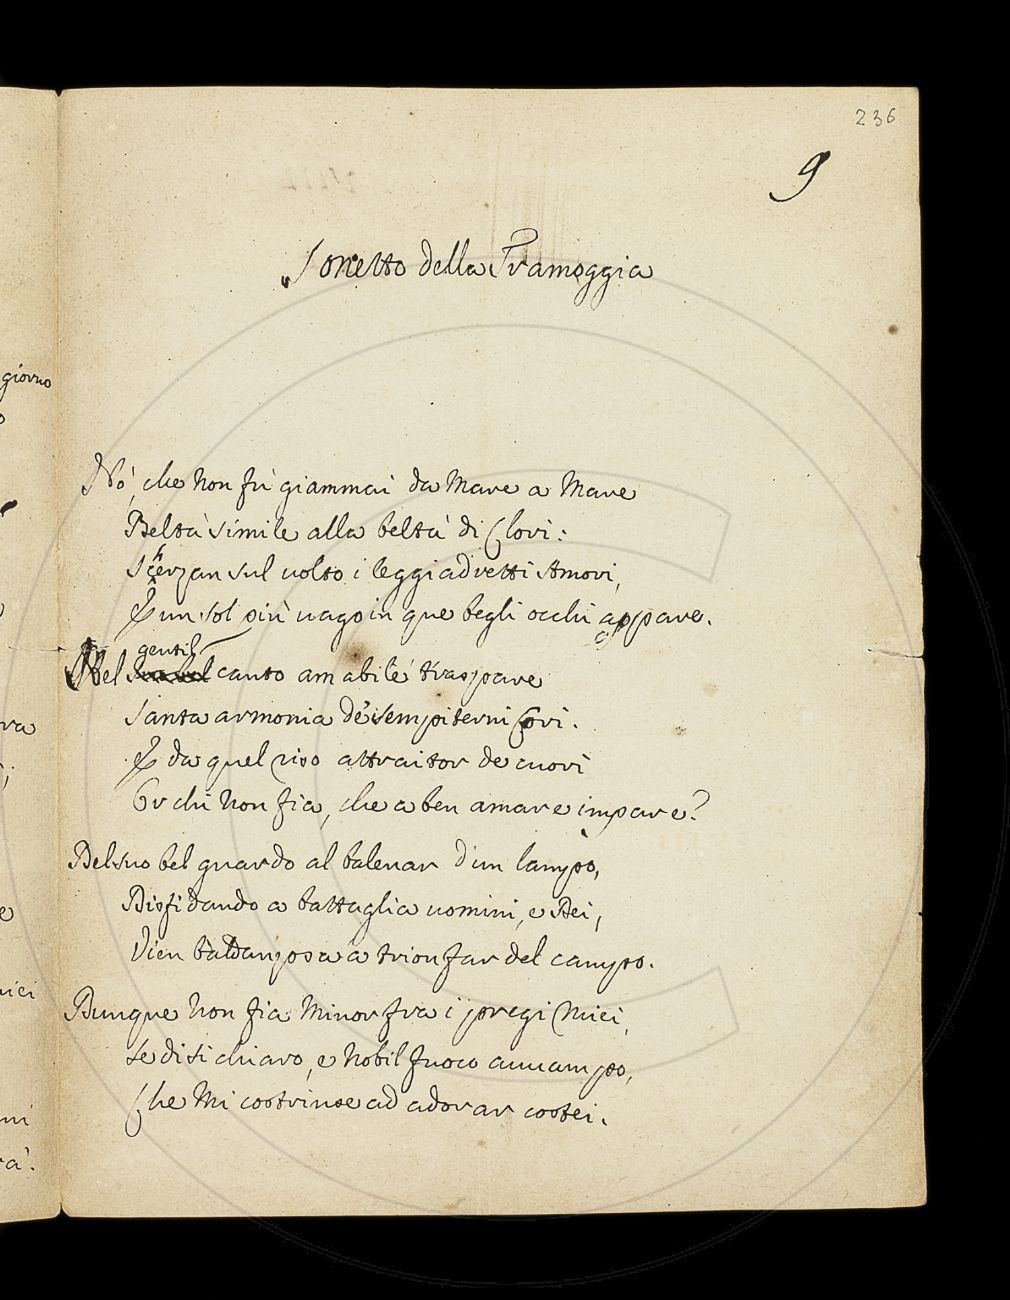 236
9
Sonetto della Tramoggia
giorno
Nò, che non fù giammai da Mare a Mare
Beltà simile alla beltà di Clori:
Scherzan sul uolto i leggiadretti Amori,
E un sol più uago in que begli occhi appare.
gentil
Nel canto amabile traspare
Santa armonia de' sempiterni Cori.
E da quel riso attraitor de cuori
Or chi non fia, che a ben amare impare?
Del suo bel guardo al balenar d'un lampo,
Disfidando a battaglia uomini, e Dei,
Vien baldanzosa a trionfar del campo.
Dunque non fia Minor fra i pregi Miei,
Se di si chiaro, e nobil fuoco auuampo,
Che Mi costrinse ad adorar costei.